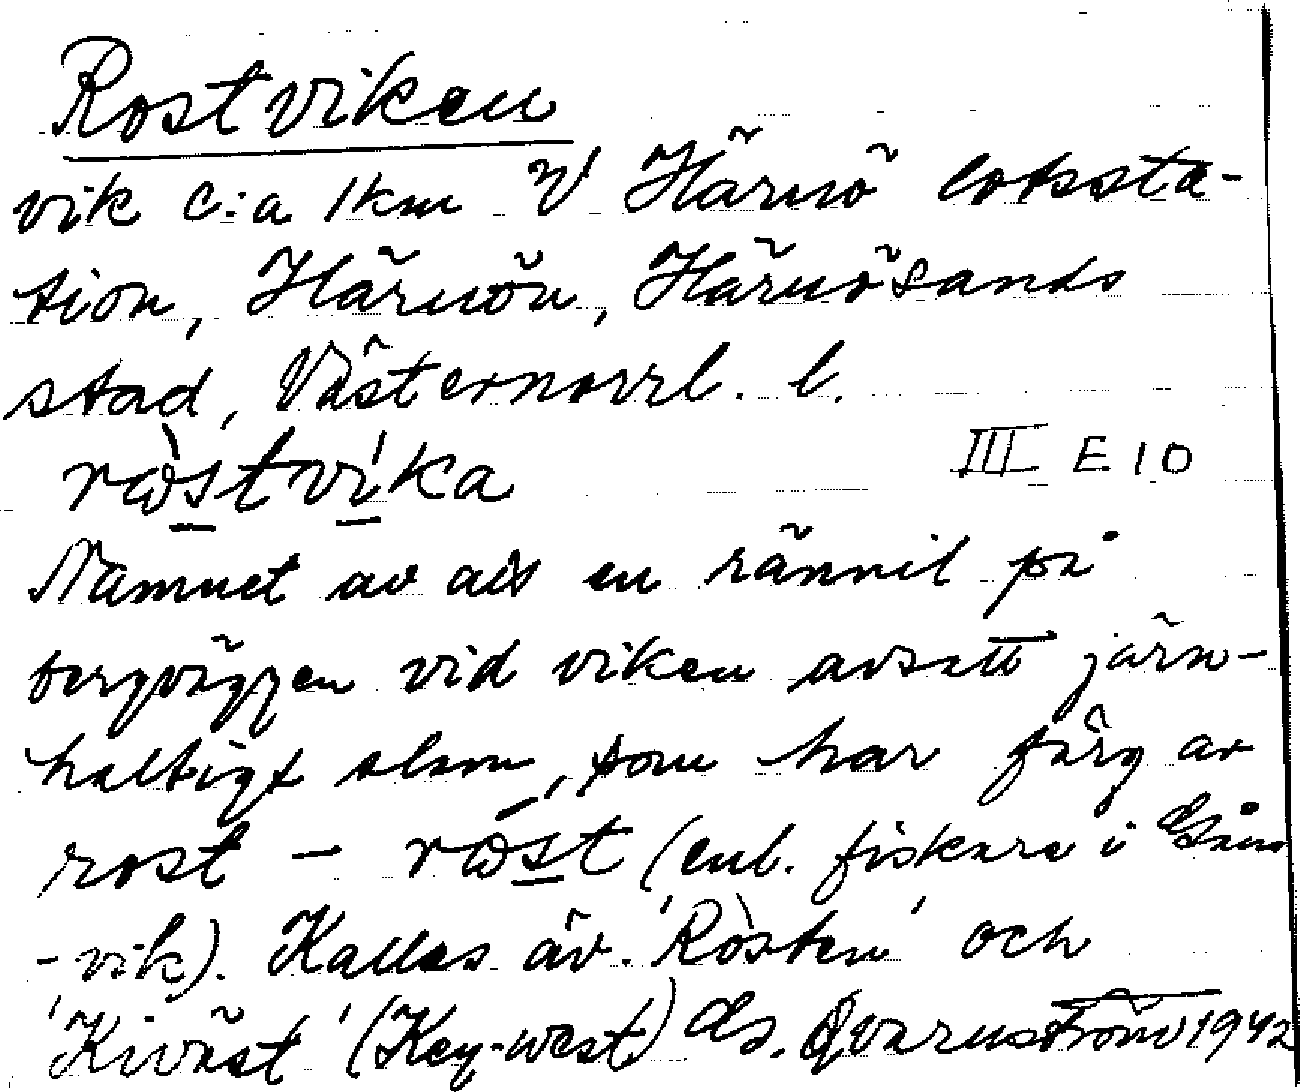 Rostviken
vik c:a 1 km V Härnö lotssta-
tion, Härnön, Härnösands
stad, Västernorrl. l.
ròstvíka
III E 10
Namnet av att en rännil på
bergväggen vid viken avsatt järn-
haltigt slam, som har färg av
rost - róst (enl. fiskare i Gån
-vik). Kallas äv. 'Ròsten' och
'Kiväst' (Key-west) Gs. Qvarnström 1942